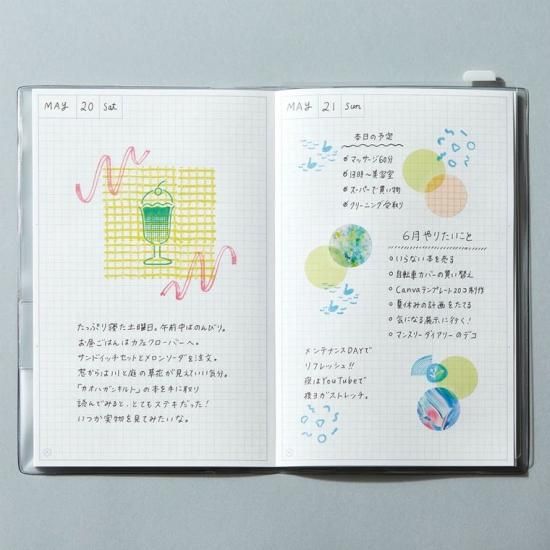 MAY 20 Sat
たっぷり寝た土曜日。午前中はのんびり。
お昼ごはんはカフェクローバーへ。
サンドイッチセットとメロンソーダを注文。
窓からは川と庭の草花が見えていい気分。
「カオハガンキルト」の本を手に取り
読んでみると、とてもステキだった!
いつか実物を見てみたいな。
MAY 21 Sun
本日の予定
マッサージ60分
13時〜美容室
スーパーで買い物
クリーニング受取り
6月やりたいこと
いらない本を売る
自転車カバーの買い替え
Canvaテンプレート20コ制作
夏休みの計画をたてる
気になる展示に行く!
マンスリーダイアリーのデコ
メンテナンスDAYで
リフレッシュ!!
夜はYouTubeで
寝ヨガストレッチ。